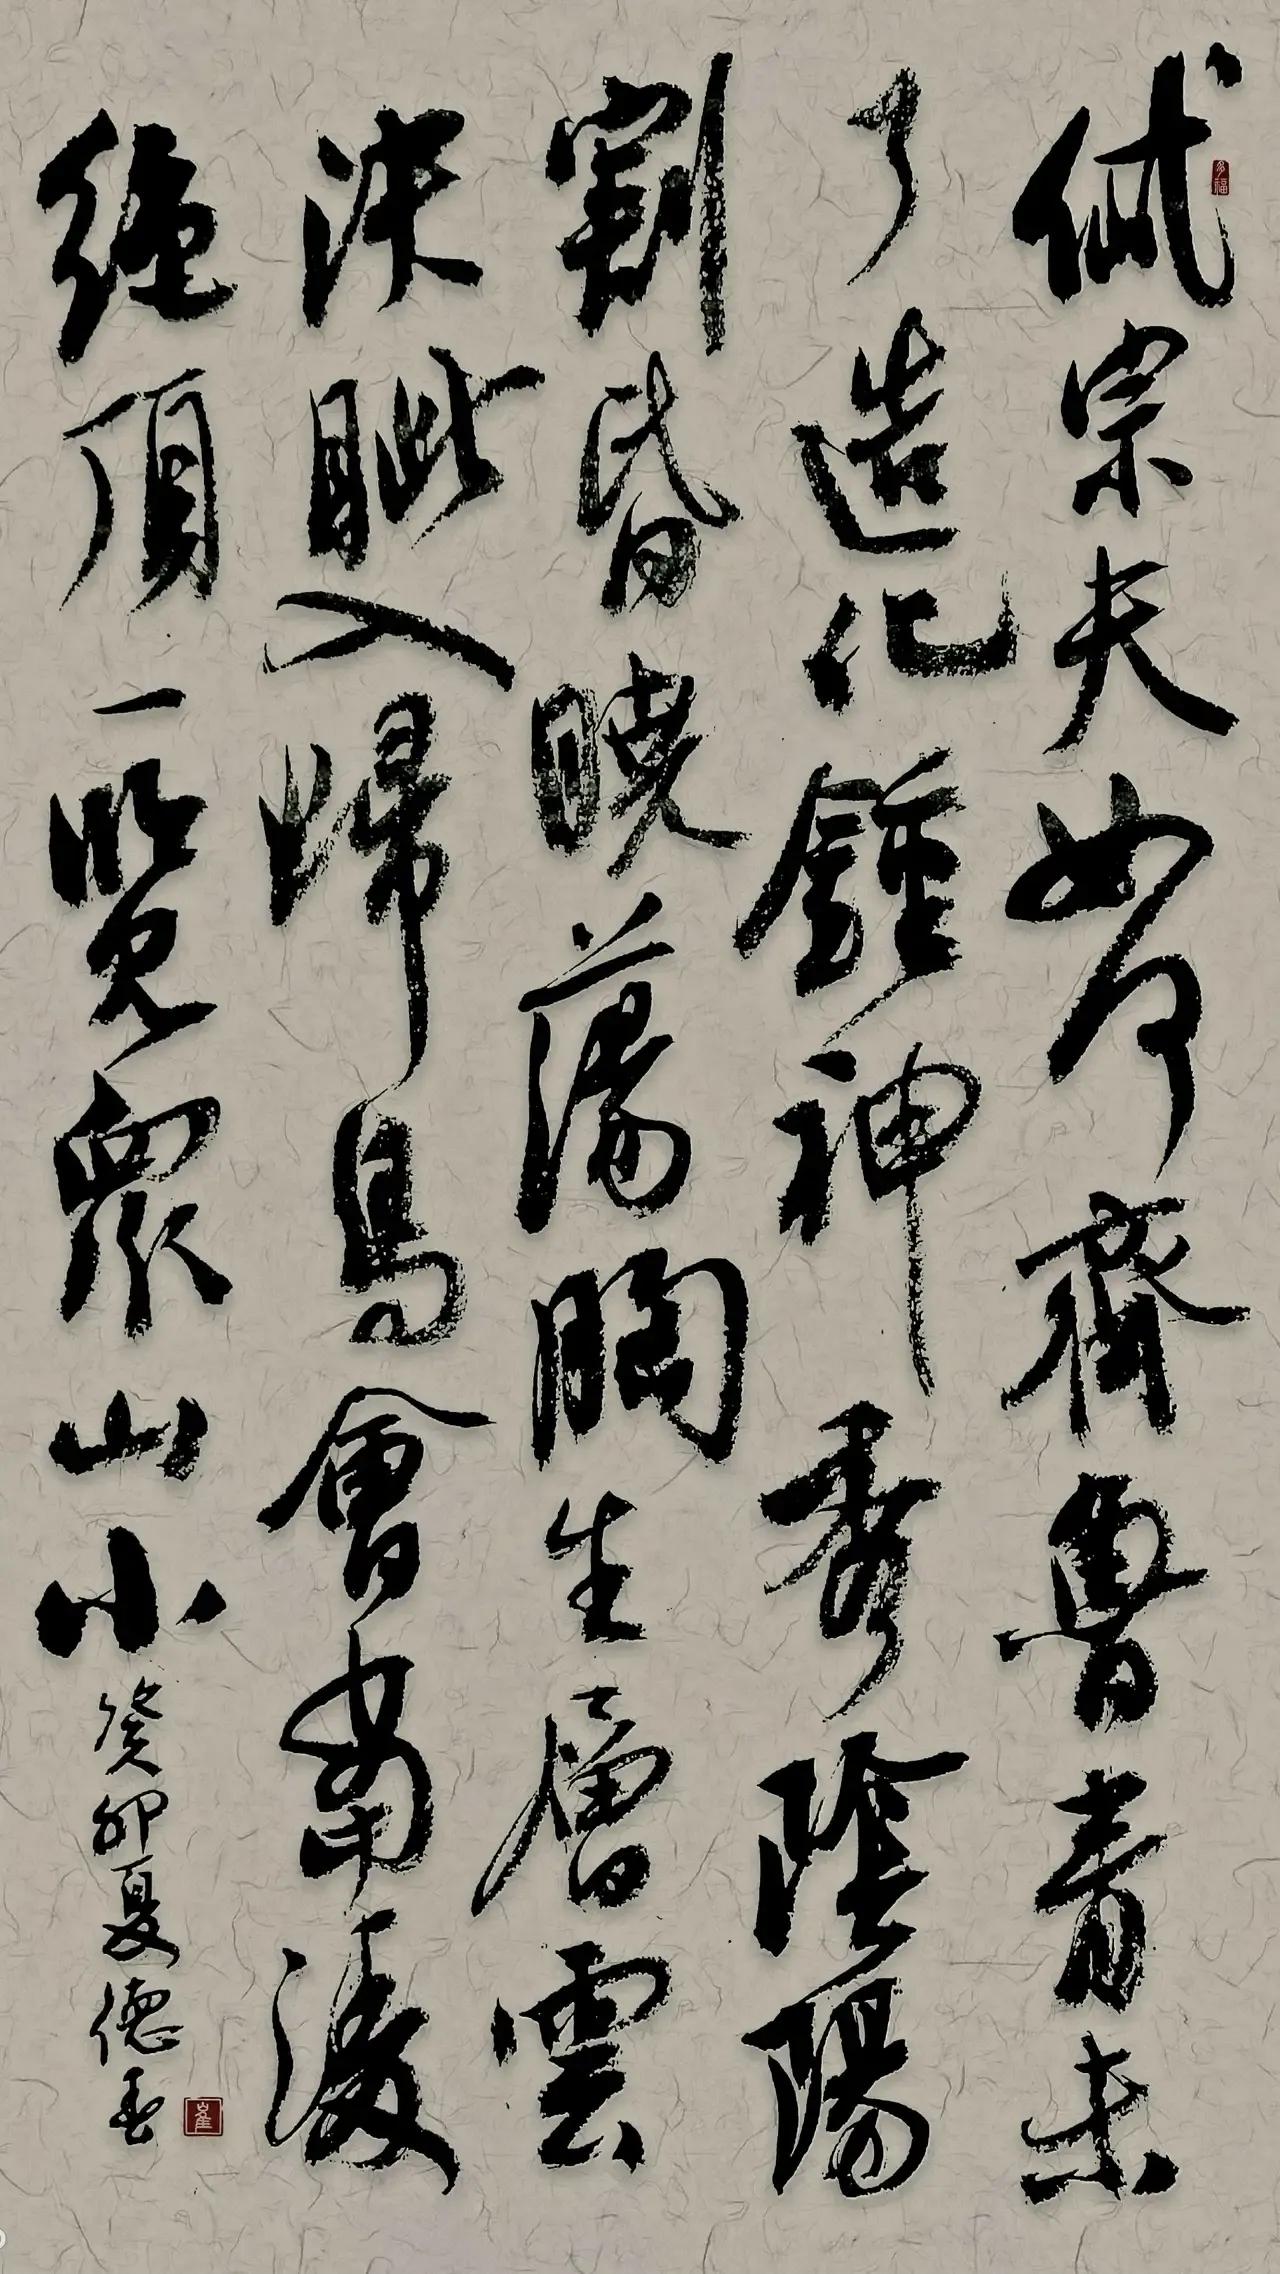 岱宗夫如何齊魯青未
了造化鍾神秀陰陽
割昏曉蕩胸生層雲
決眦入歸鳥會當淩
絕頂一覽眾山小
癸卯夏德
多福
崔